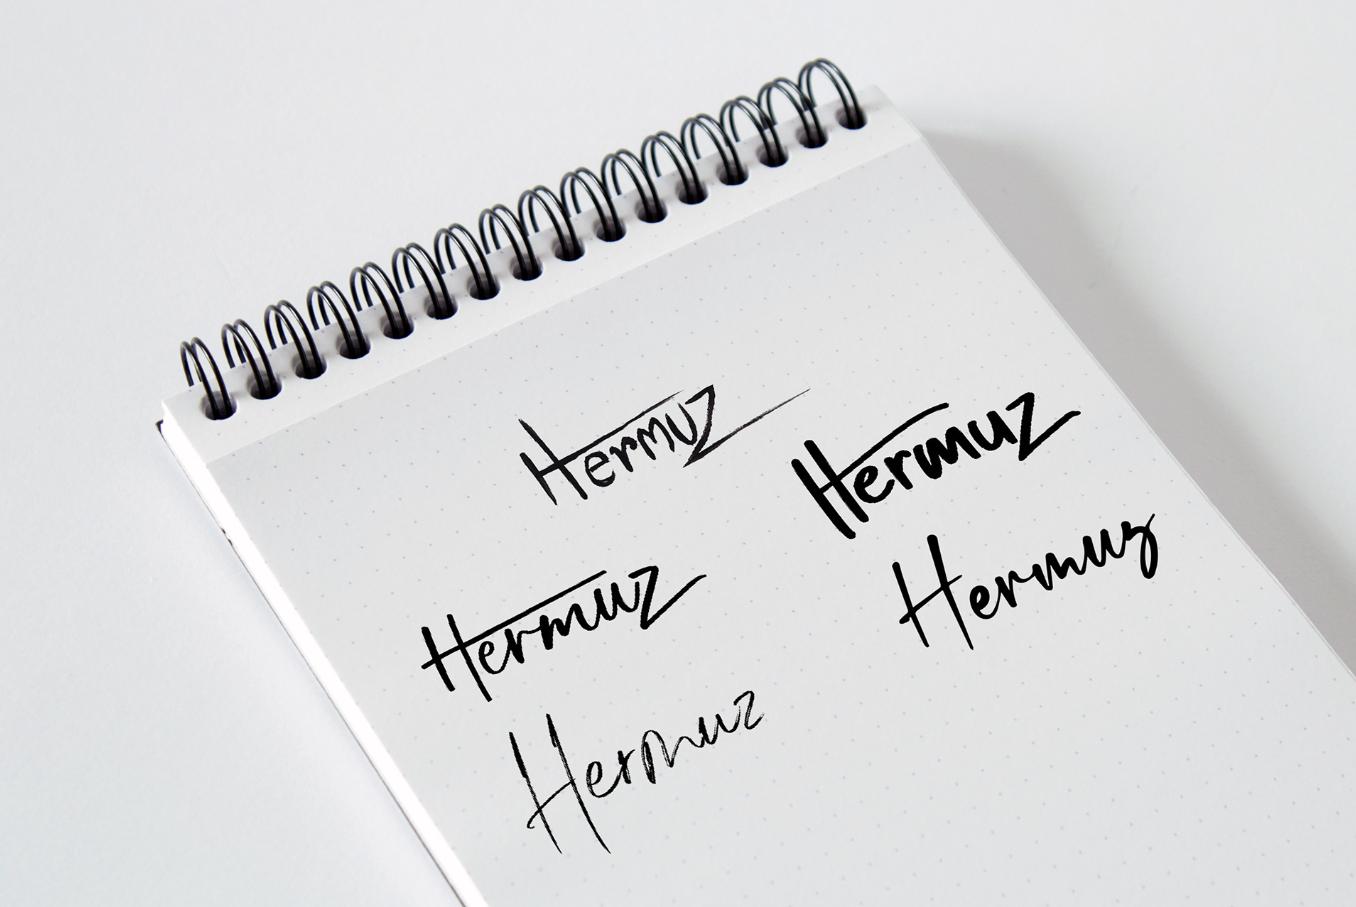 Hermuz
Hermuz
Hermuz
Hermuz
Hermuz